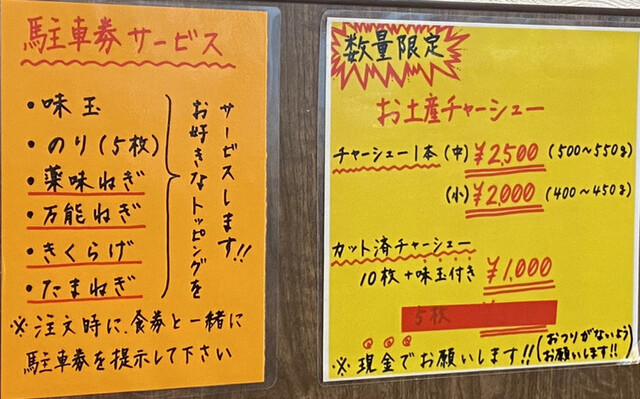 駐車券サービス
・味玉
・のり(5枚)
・薬味ねぎ
・万能ねぎ
・きくらげ
・たまねぎ
お好きなトッピングを
サービスします!!
※注文時に、食券と一緒に
駐車券を提示して下さい
数量限定
お土産チャーシュー
チャーシュー1本(中)¥2,500(500〜550g)
(小)¥2,000(400〜450g)
カット済チャーシュー
10枚+味玉付き ¥1,000
5枚
※現金でお願いします!!(おつりがないよう
お願いします!!)